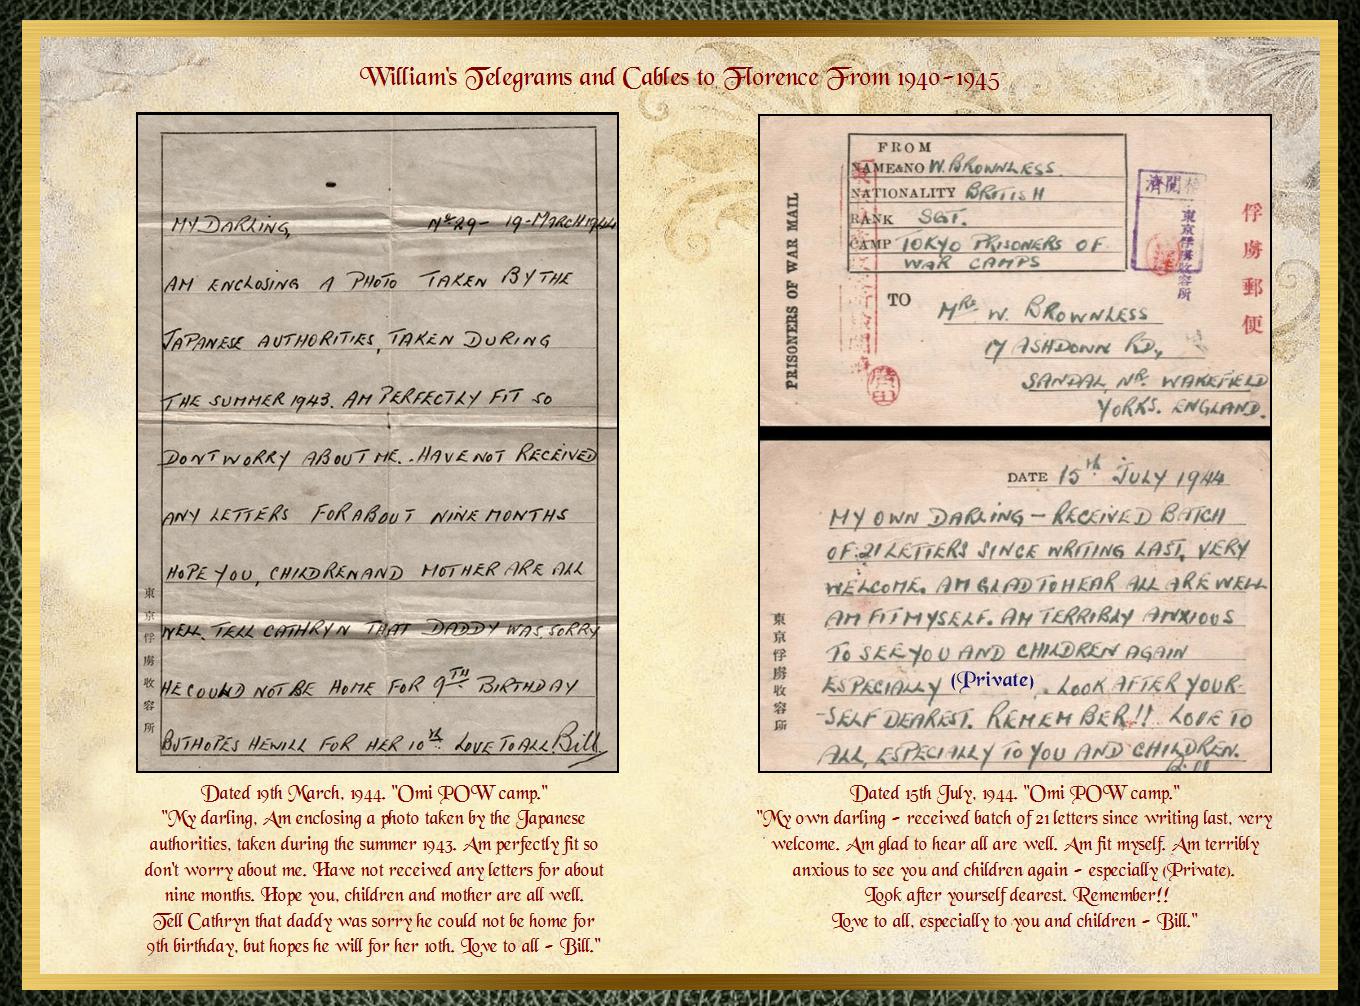 William's Telegrams and Cables to Florence From 1940-1945
MY DARLING, Nº 29- 19-MARCH 1944
AM ENCLOSING A PHOTO TAKEN BY THE
JAPANESE AUTHORITIES, TAKEN DURING
THE SUMMER 1943. AM PERFECTLY FIT SO
DONT WORRY ABOUT ME. HAVE NOT RECEIVED
ANY LETTERS FOR ABOUT NINE MONTHS
HOPE YOU, CHILDREN AND MOTHER ARE ALL
WELL. TELL CATHRYN THAT DADDY WAS SORRY
HE COULD NOT BE HOME FOR 9TH BIRTHDAY
BUT HOPES HE WILL FOR HER 10th. LOVE TO ALL Bill.
東京俘虜收容所
Dated 19th March, 1944. "Omi POW camp."
"My darling, Am enclosing a photo taken by the Japanese
authorities, taken during the summer 1943. Am perfectly fit so
don't worry about me. Have not received any letters for about
nine months. Hope you, children and mother are all well.
Tell Cathryn that daddy was sorry he could not be home for
9th birthday, but hopes he will for her 10th. Love to all - Bill."
PRISONERS OF WAR MAIL
FROM
NAME&NO W. BROWNLESS.
NATIONALITY BRITISH
RANK SGT.
CAMP TOKYO PRISONERS OF
WAR CAMPS
TO
MRS W. BROWNLESS
17 ASHDOWN RD,
SANDAL NR. WAKEFIELD
YORKS. ENGLAND.
檢閱濟
東京俘虜收容所
俘虜郵便
DATE 15th JULY 1944
MY OWN DARLING - RECEIVED BATCH
OF 21 LETTERS SINCE WRITING LAST, VERY
WELCOME. AM GLAD TO HEAR ALL ARE WELL
AM FIT MYSELF. AM TERRIBLY ANXIOUS
TO SEE YOU AND CHILDREN AGAIN
ESPECIALLY (Private). LOOK AFTER YOUR-
-SELF DEAREST. REMEMBER!! LOVE TO
ALL, ESPECIALLY TO YOU AND CHILDREN.
Bill
東京俘虜收容所
Dated 15th July, 1944. "Omi POW camp."
"My own darling - received batch of 21 letters since writing last, very
welcome. Am glad to hear all are well. Am fit myself. Am terribly
anxious to see you and children again - especially (Private).
Look after yourself dearest. Remember!!
Love to all, especially to you and children - Bill."